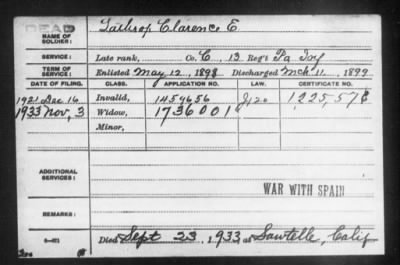 DEAD
NAME OF SOLDIER: Lathrop, Clarence E.
SERVICE: Late rank, Co. C, 13 Reg't Pa Inf
TERM OF SERVICE: Enlisted May 12, 1898 Discharged Mch 11, 1899
DATE OF FILING. CLASS. APPLICATION NO. LAW. CERTIFICATE NO.
1921 Dec 16 Invalid, 1454656 J120 1225576
1933 Nov. 3 Widow, 1736001
Minor,
ADDITIONAL SERVICES:
WAR WITH SPAIN
REMARKS:
Died Sept 23, 1933, at Sawtelle, Calif